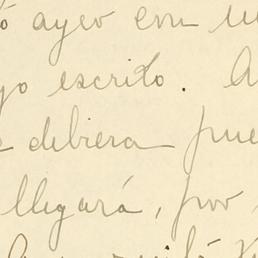 ó ayer con u
yo escrito. A
e debiera pue
llegará, por